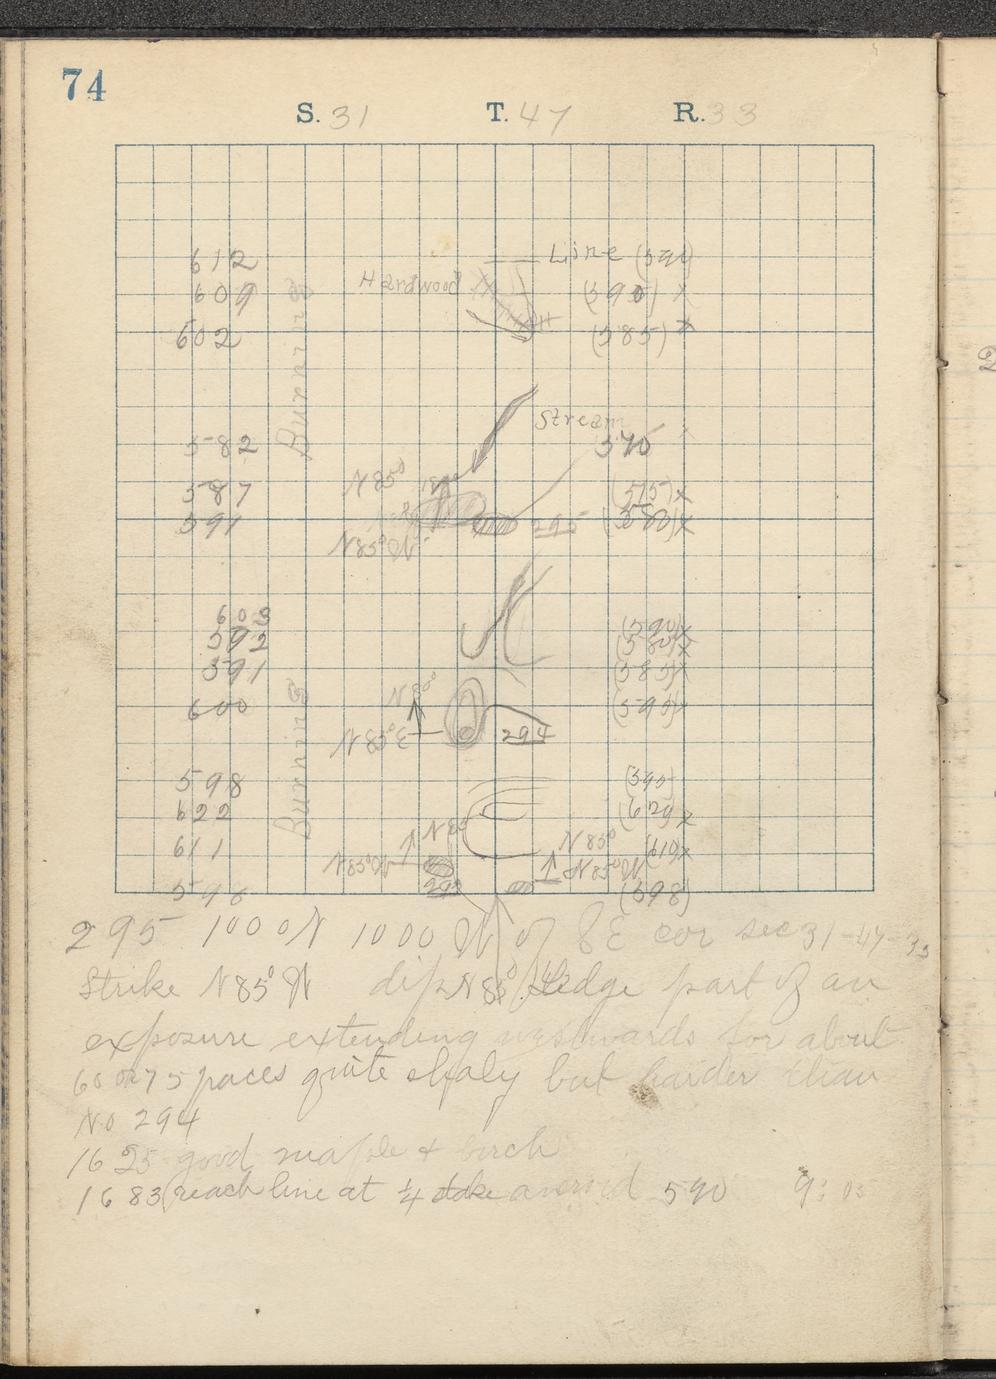 74
S. 31 T. 47 R. 33
612 Line (590)
609 Hardwood (590) x
602 (585) x
Burning
Stream
582 570
587 N85° (575) x
591 295 (580) x
N85°W
603 (590) x
592 (580) x
591 (585) x
600 N85° (590) x
N85°E 294
Burning
598 (590)
622 N85 (629) x
611 N85°W N85° (610) x
N85°W
598 293 (598)
295 1000 N 1000 W of SE cor sec 31-47-33
Strike N85°W dip N85° Ledge part of an
exposure extending westwards for about
60 or 75 paces quite shaly but harder than
No 294
1625 good maple & birch
1683 reach line at 1/4 stake aneroid 590 9:05